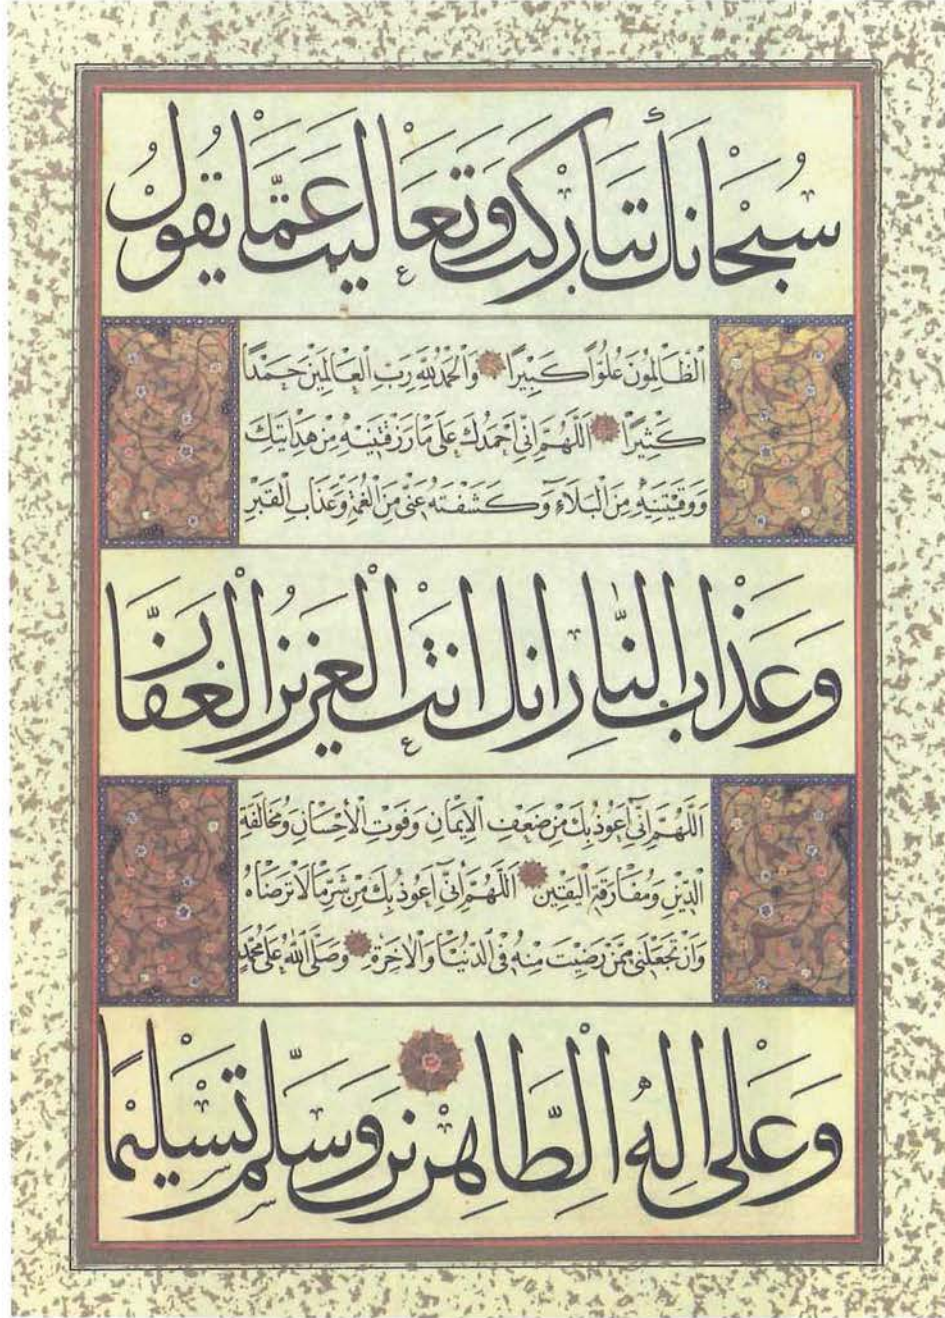 سُبْحَانَكَ تَبَارَكْتَ وَتَعَالَيْتَ عَمَّا يَقُولُ
الْظَّالِمُونَ عُلُوًّا كَبِيرًا وَالْحَمْدُ لِلَّهِ رَبِّ الْعَالَمِينَ حَمْدًا
كَثِيرًا اَللَّهُمَّ اِنِّى اَحْمَدُكَ عَلَى مَا رَزَقْتَنِيهِ مِنْ هِدَايَتِكَ
وَوَقَيْتَنِيهِ مِنَ الْبَلَاءِ وَ كَشَفْتَهُ عَنِّى مِنَ الْغُمَّةِ وَعَذَابِ الْقَبْرِ
وَعَذَابِ النَّارِ اِنَّكَ اَنْتَ الْعَزِيزُ الْغَفَّارُ
اَللَّهُمَّ اِنِّى اَعُوذُ بِكَ مِنْ ضَعْفِ الْاِيمَانِ وَفَوْتِ الْاِحْسَانِ وَمُخَالَفَةِ
الدِّينِ وَمُفَارَقَةِ الْيَقِينِ اَللَّهُمَّ اِنِّى اَعُوذُ بِكَ مِنْ شَرِّ مَا لَا تَرْضَاهُ
وَاَنْ تَجْعَلَنِى مِمَّنْ رَضِيتَ مِنْهُ فِى الدُّنْيَا وَالْاٰخِرَةِ وَصَلَّى اللَّهُ عَلَى مُحَمَّدٍ
وَعَلَى اٰلِهِ الْطَّاهِرِينَ وَسَلَّمَ تَسْلِيمًا